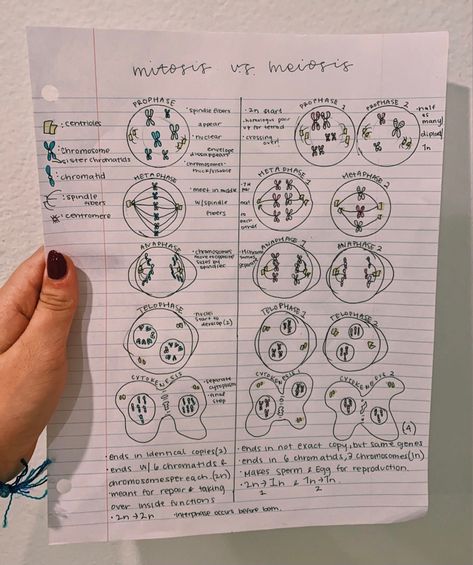 mitosis vs. meiosis
: centrioles
: chromosome
sister chromatids
: chromatid
: spindle
fibers
: centromere
PROPHASE
• spindle fibers
appear
• nuclear
envelope
dissappears
• chromosomes
thick/visible
METAPHASE
• meet in middle
w/ spindle
fibers
ANAPHASE
• chromosomes
move to opposite
sides by
spindles
TELOPHASE
• nuclei
start to
develop (2)
CYTOKENESIS
• separate
cytoplasm
• final
step
• 2n start
• homologus pair
up for tetrad
• crossing
over!
PROPHASE 1
PROPHASE 2
• half
as
many
diploid
1n
METAPHASE 1
next
to
each
other
METAPHASE 2
ANAPHASE 1
ANAPHASE 2
TELOPHASE 1
TELOPHASE 2
CYTOKENESIS 1
CYTOKENESIS 2
(4)
• ends in identical copies (2)
• ends w/ 6 chromatids &
chromosomes per each. (2n)
• means for repair & taking
over inside functions
• 2n → 2n
interphase occurs before both.
• ends in not exact copy, but same genes
• ends in 6 chromatids, 3 chromosomes (1n)
• Makes sperm & Egg for reproduction.
• 2n → 1n & 1n → 1n
1 2